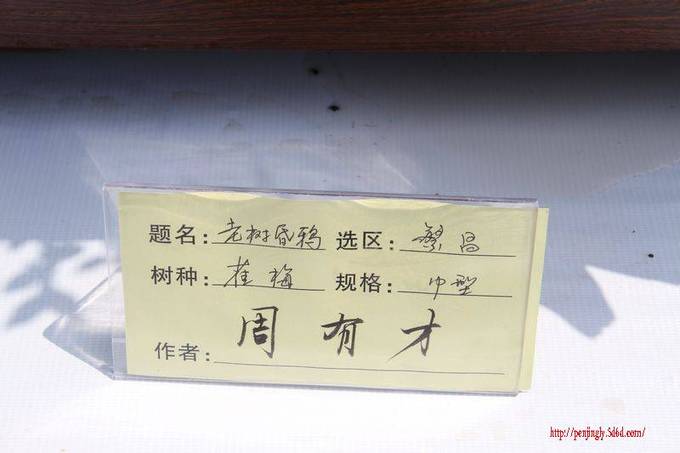 题名：老树昏鸦 选区：繁昌
树种：雀梅 规格：中型
作者：周有才
http://penjingly.5d6d.com/